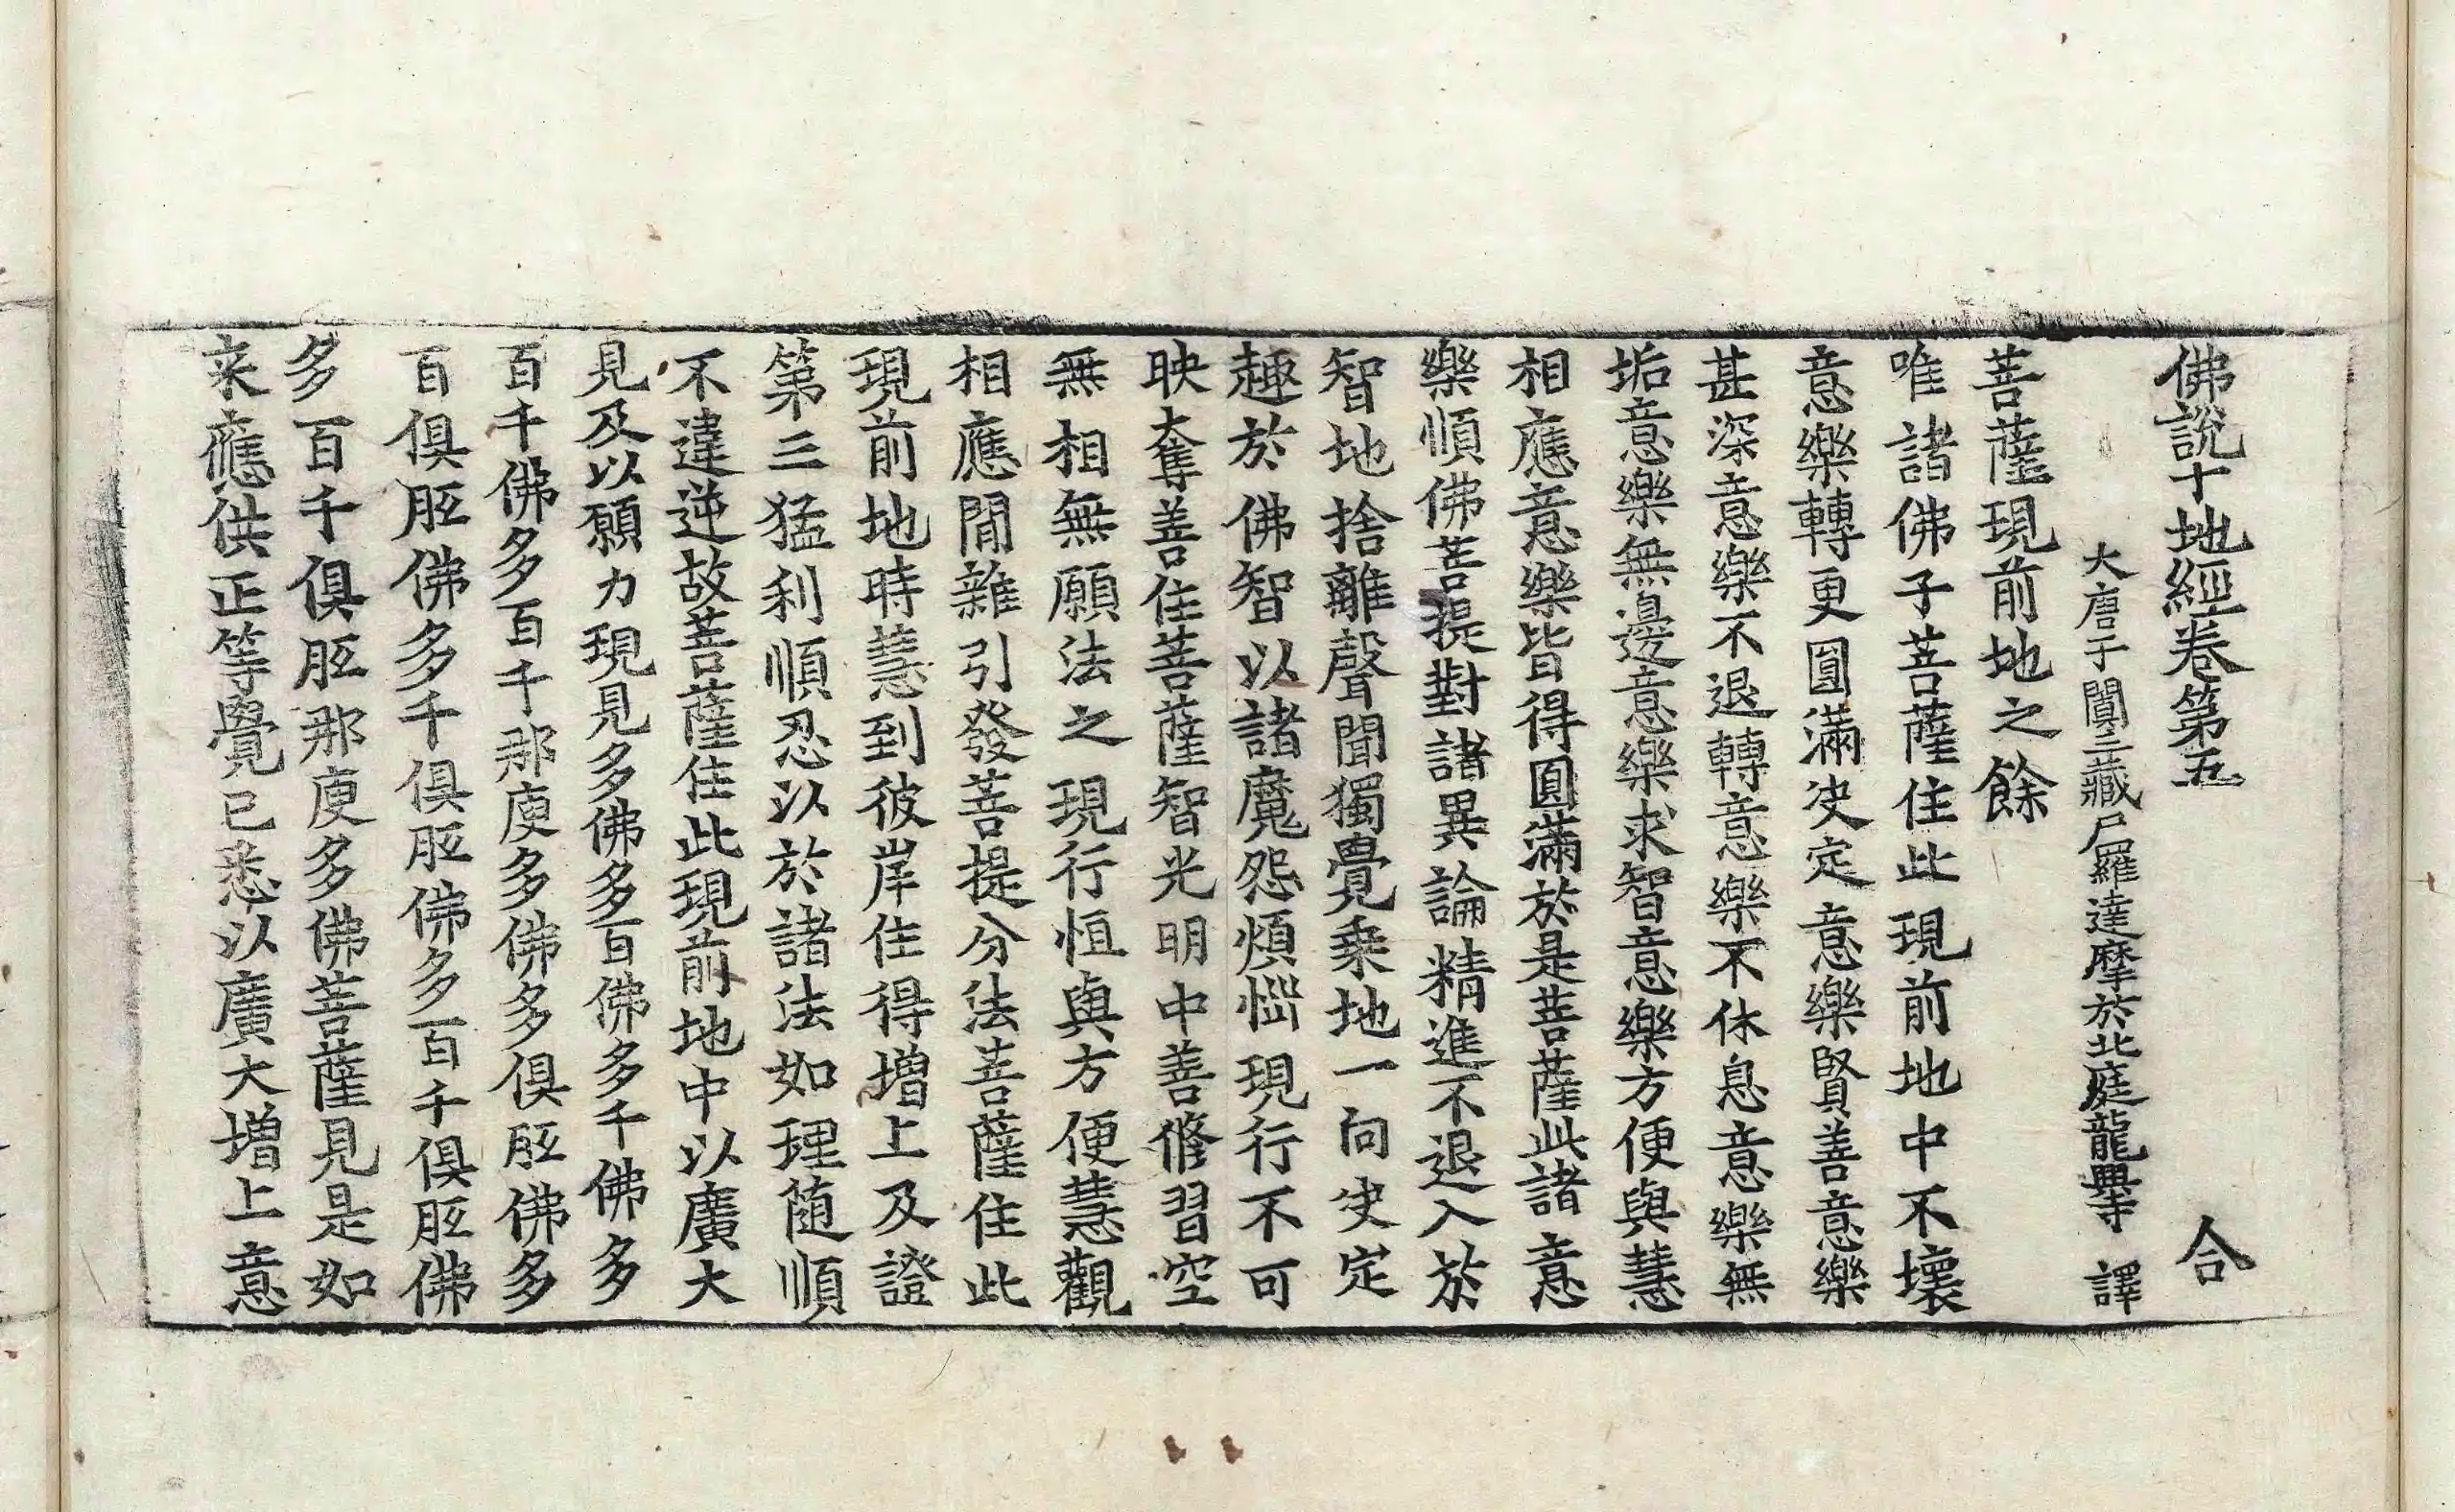 佛說十地經卷第五　合
大唐于闐三藏尸羅達摩於北庭龍興寺　譯
菩薩現前地之餘
唯諸佛子菩薩住此現前地中不壞
意樂轉更圓滿决定意樂賢善意樂
甚深意樂不退轉意樂不休息意樂無
垢意樂無邊意樂求智意樂方便與慧
相應意樂皆得圓滿於是菩薩此諸意
樂順佛菩提對諸異論精進不退入於
智地捨離聲聞獨覺乗地一向决定
趣於佛智以諸魔怨煩惱現行不可
映奪善住菩薩智光明中善修習空
無相無願法之現行恒與方便慧觀
相應閒雜引發菩提分法菩薩住此
現前地時慧到彼岸住得增上及證
第三猛利順忍以於諸法如理随順
不違逆故菩薩住此現前地中以廣大
見及以願力現見多佛多百佛多千佛多
百千佛多百千那庾多佛多俱胝佛多
百俱胝佛多千俱胝佛多百千俱胝佛
多百千俱胝那庾多佛菩薩見是如
来應供正等覺已悉以廣大增上意